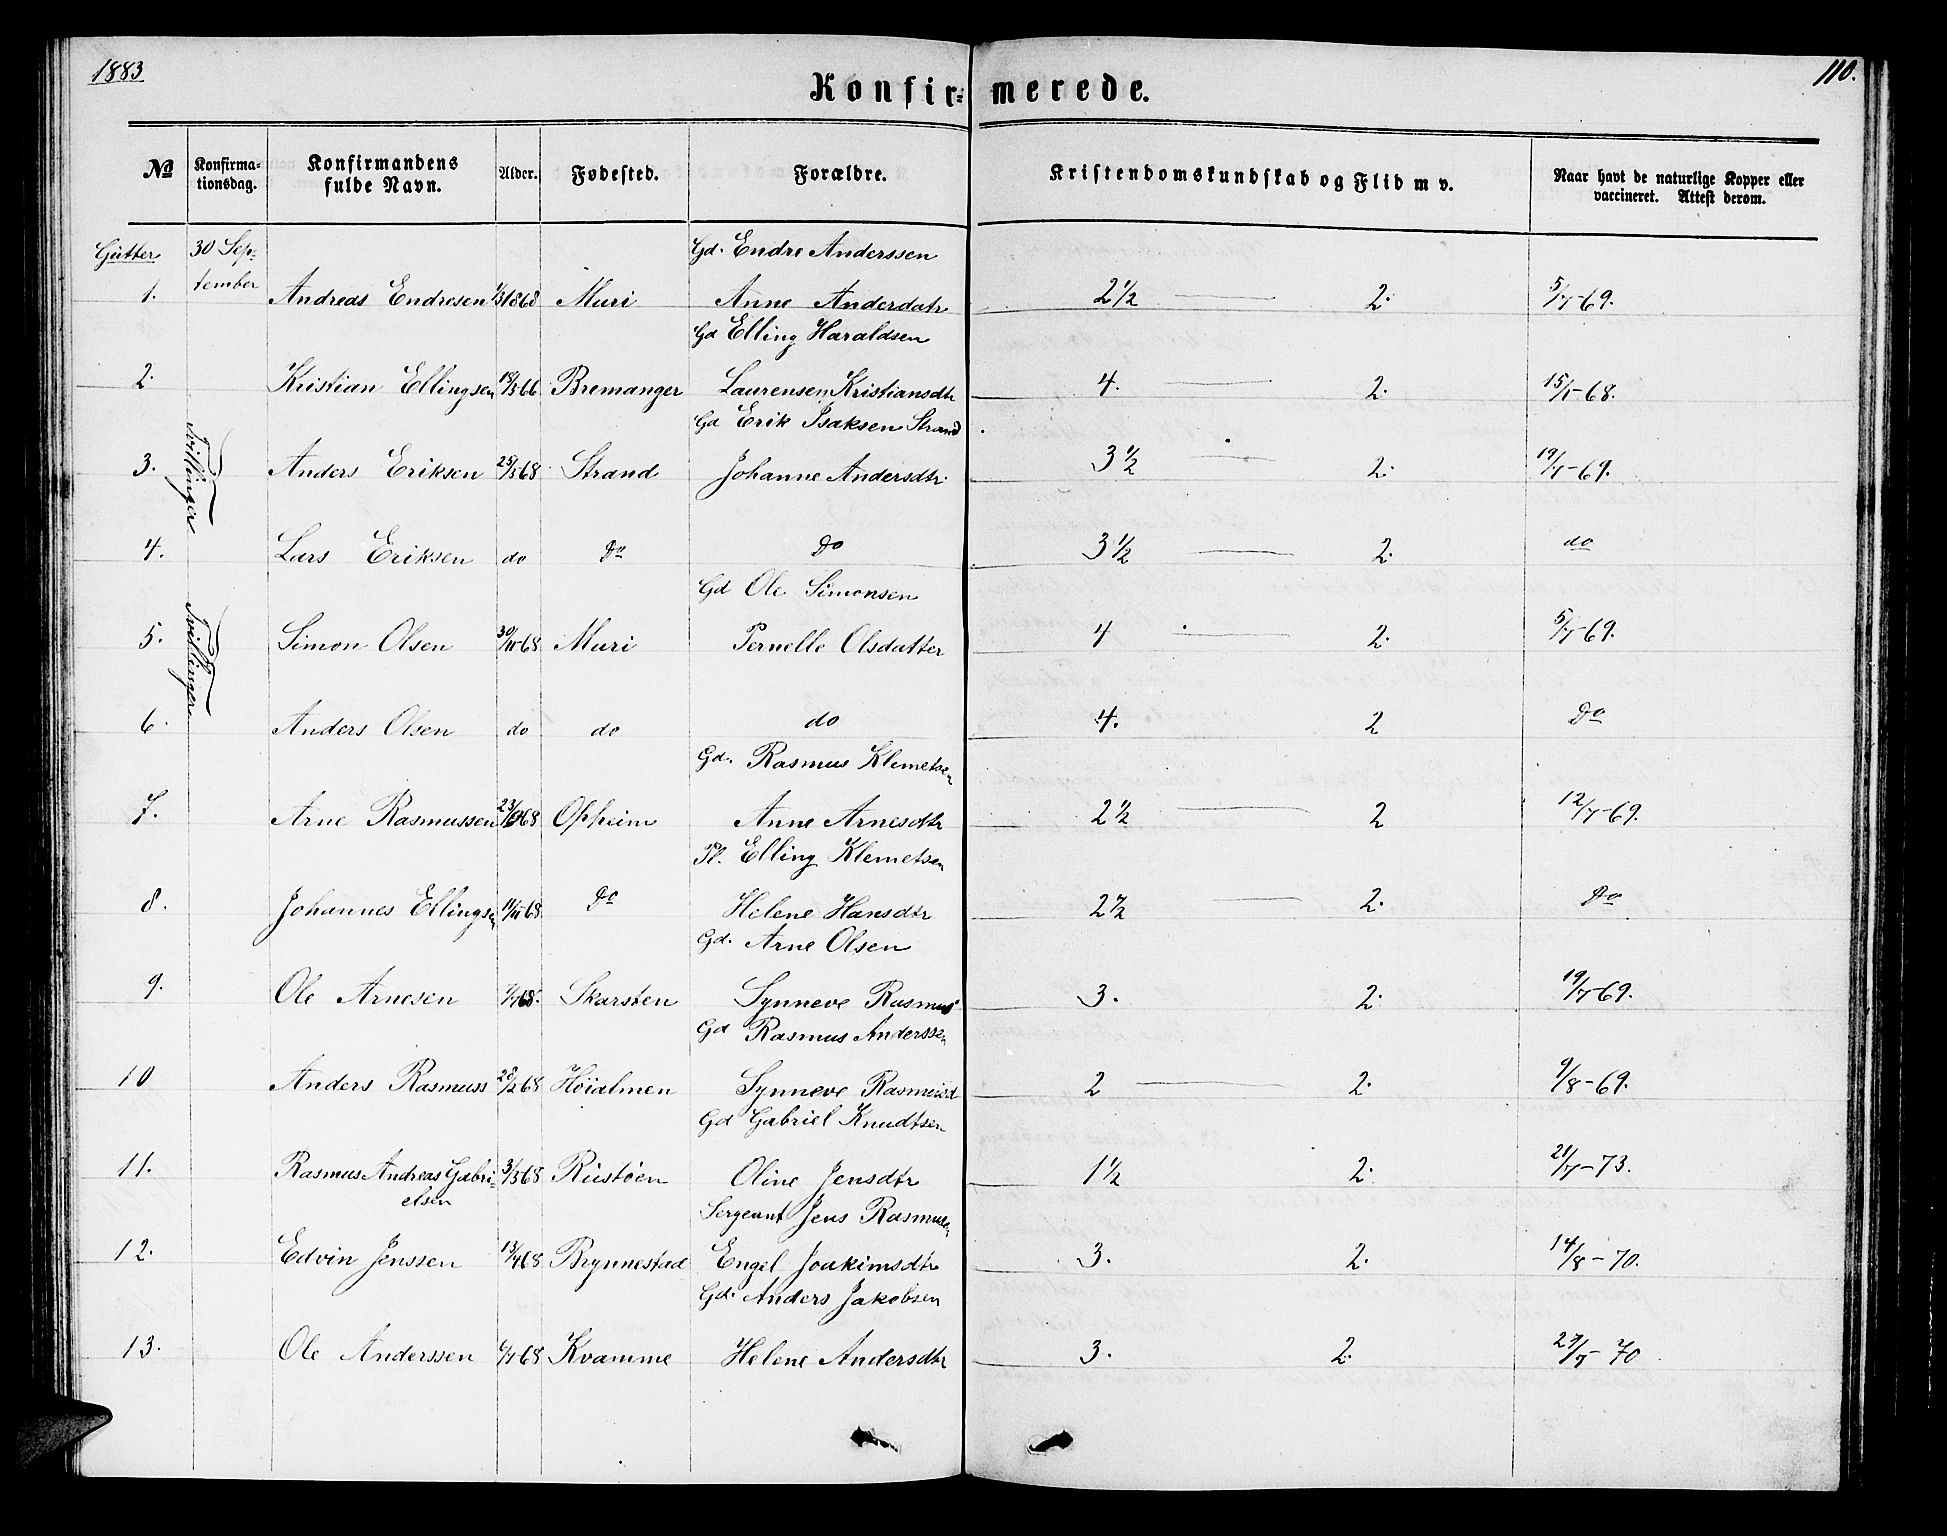 1883
110.
Konfir= merede.
No Konfirma=tionsdag. Konfirmandens fulde Navn. Alder. Fødested. Forældre. Kristendomskundskab og Flid m v. Naar havt de naturlige Kopper eller vaccineret. Attest derom.
Gutter 30 Sep= Gd. Endre Anderssen
1. tember Andreas Endresen 1868 Muri Anne Andersdatr 2 1/2 2. 5/7-69.
Gd Elling Haraldsen
2. Kristian Ellingsen 18/5 66 Bremanger Laurensen Kristiansdtr 4. 2. 15/1-68.
Gd Erik Isaksen Strand
3. Tvillinger Anders Eriksen 25/5 68 Strand Johanne Andersdtr 3 1/2 2. 19/7-69.
4. Lars Eriksen do Do Do 3 1/2 2. do
Gd Ole Simonsen
5. Tvillinger Simon Olsen 30/11 68 Muri Pernelle Olsdatter 4 2. 5/7-69.
6. Anders Olsen do do do 4. 2 Do
Gd. Rasmus Klemetsen
7. Arne Rasmussen 68 Opheim Anne Arnesdtr 2 1/2 2 12/7-69.
Pl. Elling Klemetsen
8. Johannes Ellingsen 14/11 68 Do Helene Hansdtr 2 1/2 2. Do
Gd. Arne Olsen
9. Ole Arnesen 68. Skarsten Synneve Rasmus 3. 2. 19/7-69.
Gd Rasmus Anderssen
10 Anders Rasmuss 28/2 68 Höialmen Synneve Rasmusd 2 2. 9/8-69.
Gd Gabriel Knudtsen
11. Rasmus Andreas Gabri= 3/5 68 Rustöen Oline Jensdtr 1 1/2 2. 21/7-73.
elsen
Sergeant Jens Rasmusen
12. Edvin Jenssen 13/4 68 Brynnestad Engel Joakimsdtr 3. 2. 14/8-70.
Gd. Anders Jakobsen
13. Ole Anderssen 6/7 68 Kvamme Helene Andersdtr 3. 2. 70